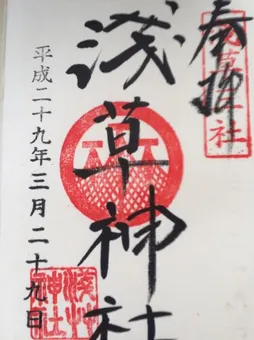 奉拝
浅草神社
平成二十九年三月二十九日
浅草神社